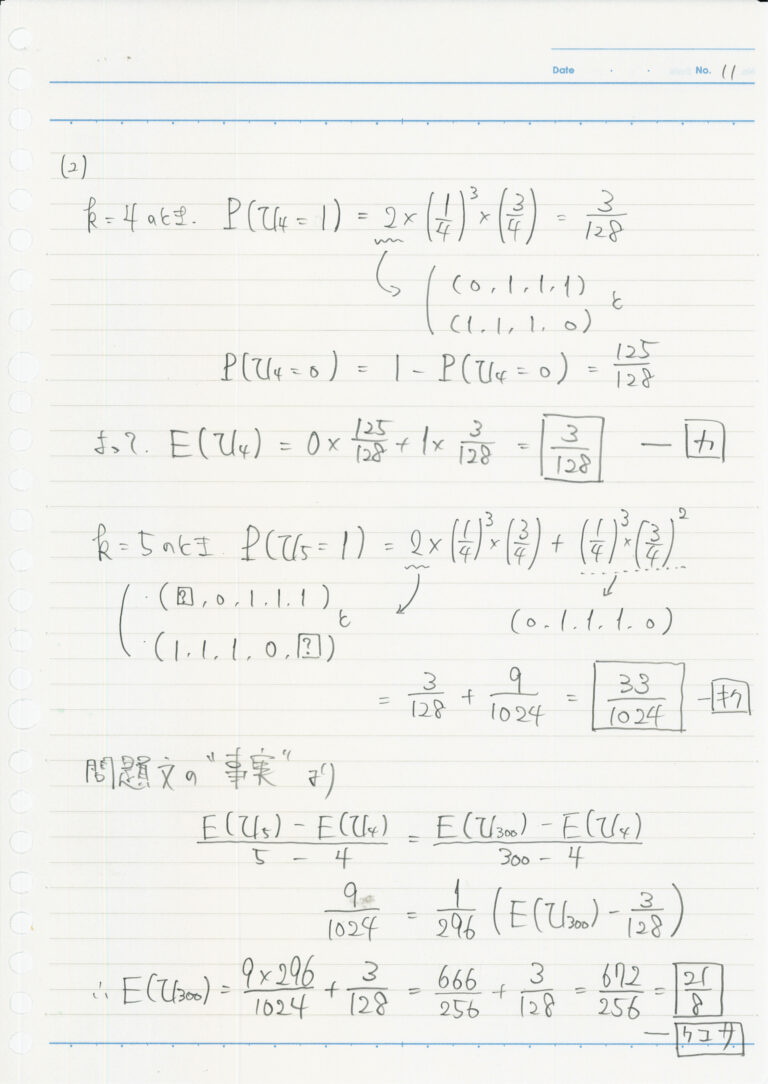 Date ・ ・ No. 11
(2)
k=4のとき. P(U₄=1) = 2×(1/4)³×(3/4) = 3/128
(0,1,1,1)と
(1,1,1,0)
P(U₄=0) = 1 - P(U₄=0) = 125/128
よって. E(U₄) = 0×125/128 + 1×3/128 = 3/128 — カ
k=5のとき. P(U₅=1) = 2×(1/4)³×(3/4) + (1/4)³×(3/4)²
・(?,0,1,1,1)と
・(1,1,1,0,?)
(0,1,1,1,0)
= 3/128 + 9/1024 = 33/1024 — キク
問題文の“事実”より
(E(U₅) - E(U₄))/(5 - 4) = (E(U₃₀₀) - E(U₄))/(300 - 4)
9/1024 = 1/296 (E(U₃₀₀) - 3/128)
∴ E(U₃₀₀) = 9×296/1024 + 3/128 = 666/256 + 3/128 = 672/256 = 21/8
— ケコサ